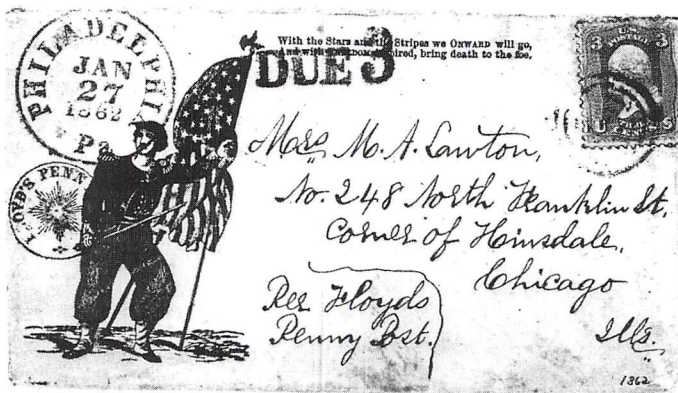 PHILADELPHIA
JAN
27
1862
Pa
With the Stars and the Stripes we ONWARD will go,
And with inspired, bring death to the foe.
DUE 3
3 3
U S
LOYD'S PENN
Mrs M. A. Lawton,
No. 248 North Franklin St.
Corner of Hinsdale,
Chicago
Ills.
Per Floyds
Penny Post.
1862